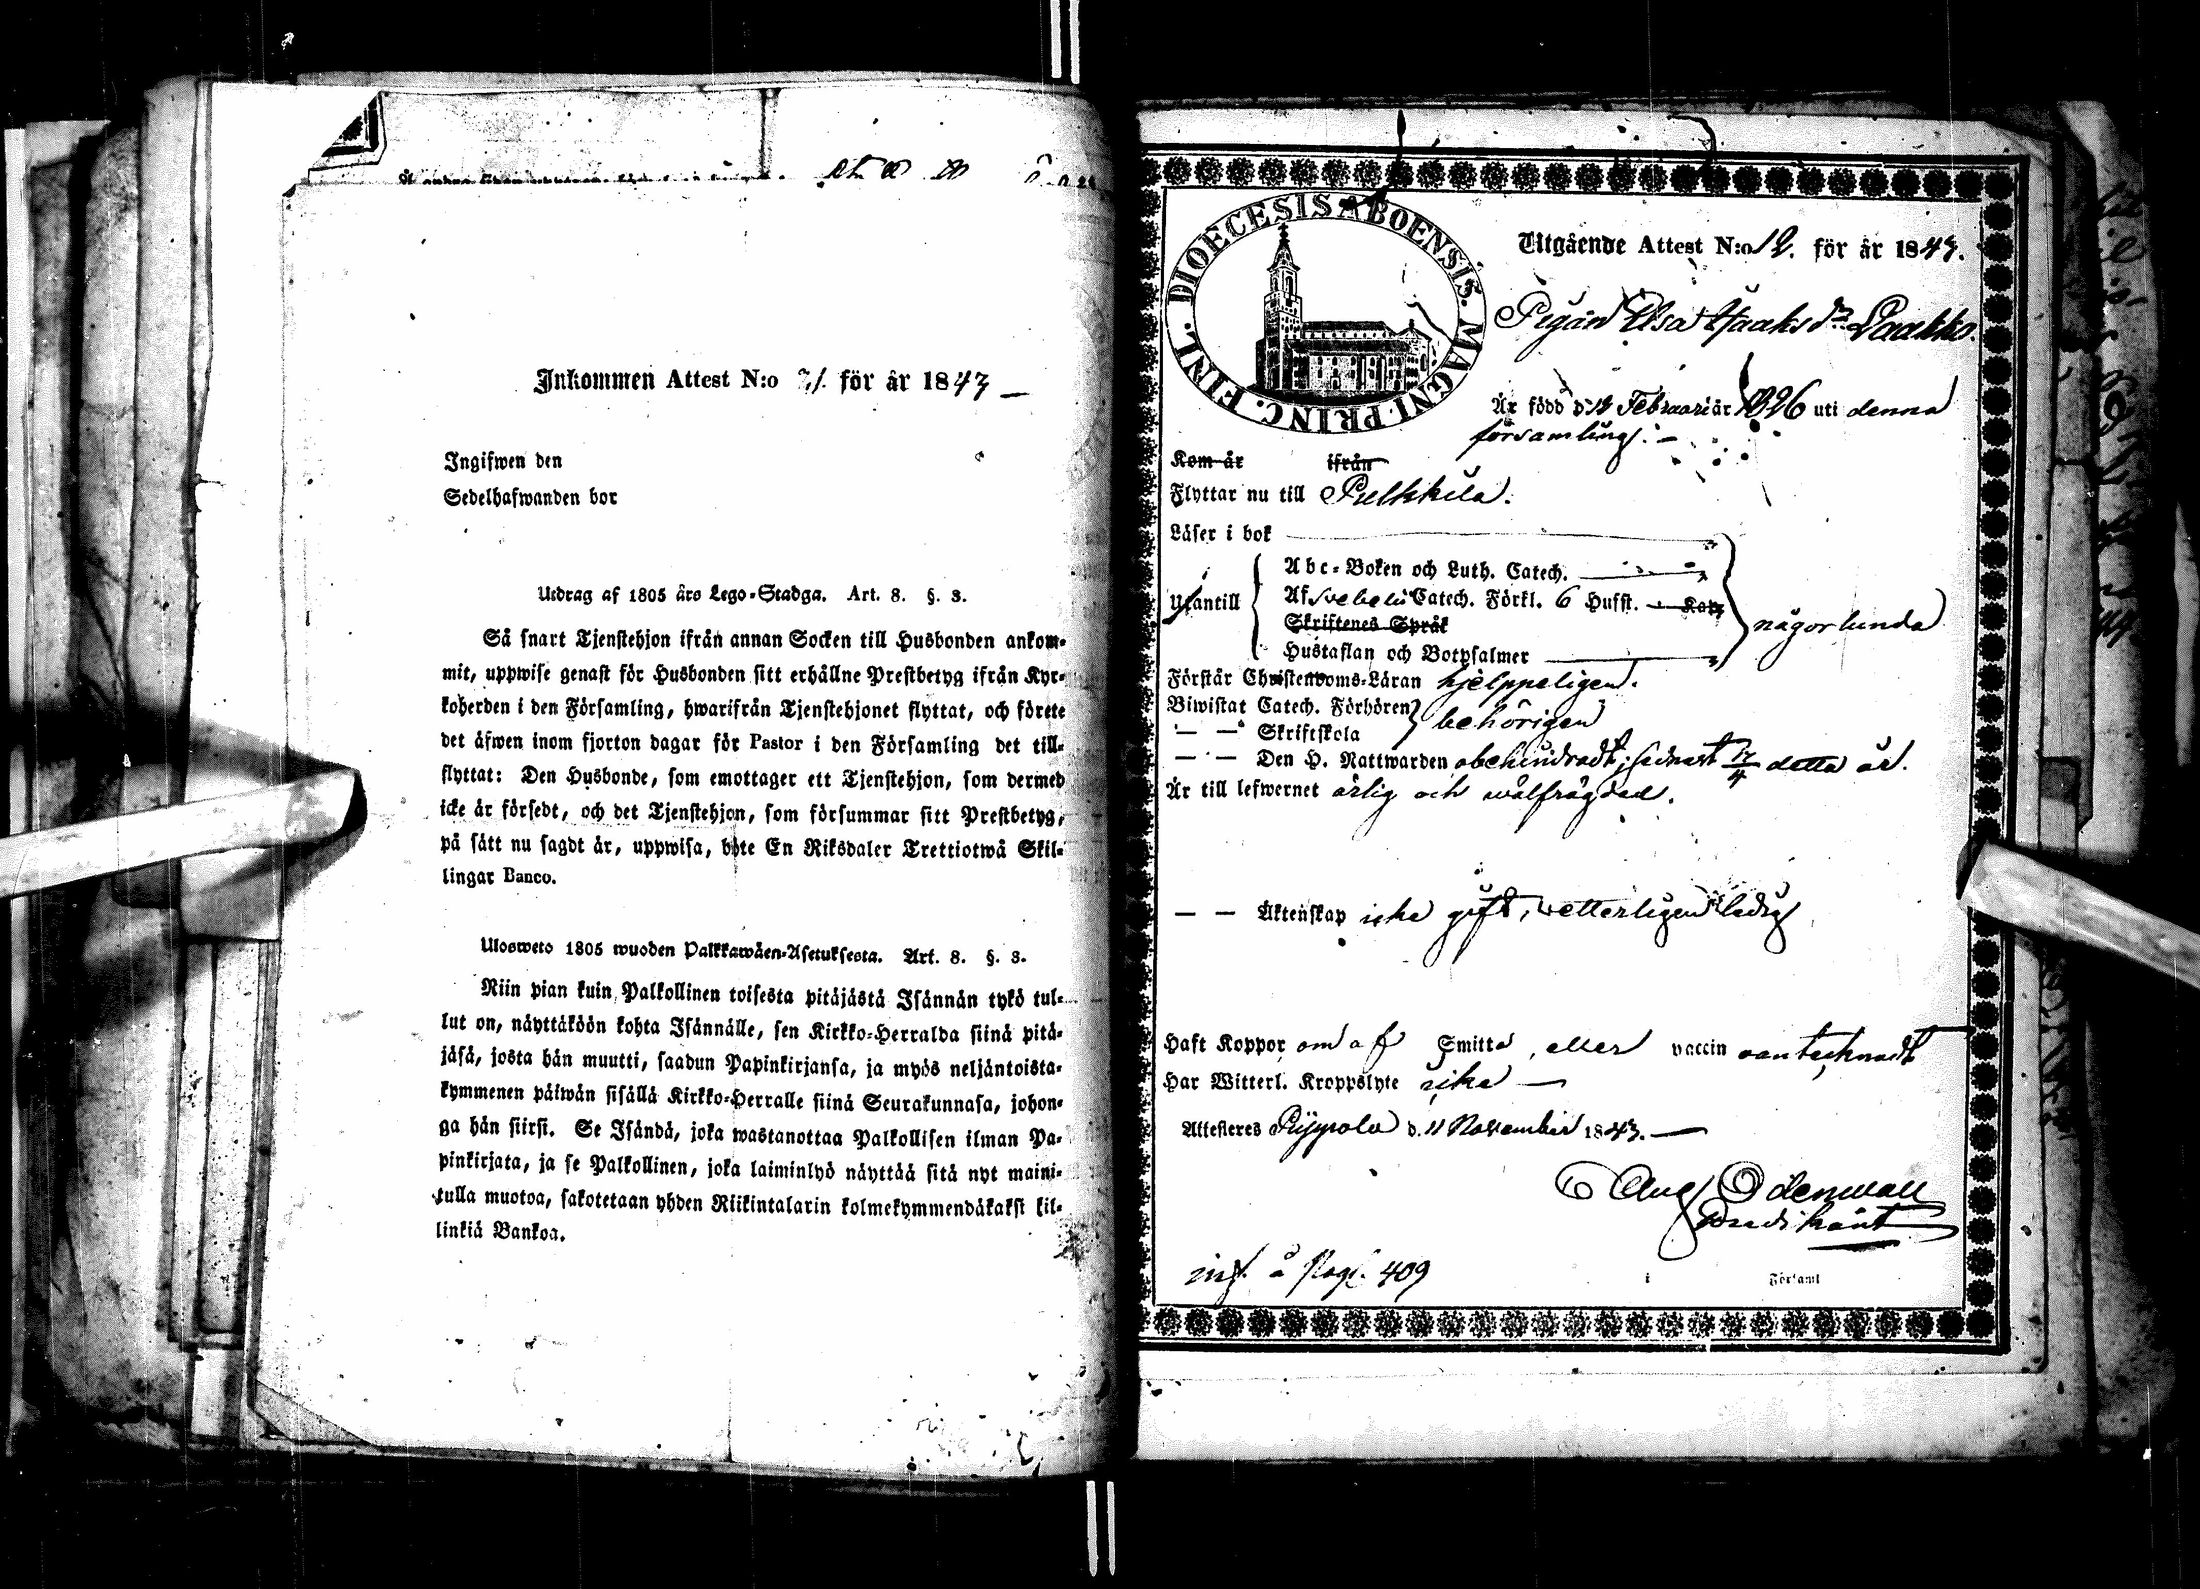 Inkommen Attest N:o 21 för år 1843
Ingifwen den
Sedelhafwanden bor
Utdrag af 1805 års Lego-Stadga. Art. 8. §. 3.
Så snart Tjenstehjon ifrån annan Socken till Husbonden ankom-
mit, uppwise genast för Husbonden sitt erhållne Prestbetyg ifrån Kyr-
koherden i den Församling, hwarifrån Tjenstehjonet flyttat, och förete
det äfwen inom fjorton dagar för Pastor i den Församling det till-
flyttat: Den Husbonde, som emottager ett Tjenstehjon, som dermed
icke är försedt, och det Tjenstehjon, som försummar sitt Prestbetyg,
på sätt nu sagdt är, uppwisa, böte En Riksdaler Trettiotwå Skil-
lingar Banco.
Ulosweto 1805 wuoden Palkkawäen-Asetuksesta. Art. 8. §. 3.
Niin pian kuin Palkollinen toisesta pitäjästä Isännän tykö tul-
lut on, näyttäköön kohta Isännälle, sen Kirkko-Herralda siinä pitä-
jäsä, josta hän muutti, saadun Papinkirjansa, ja myös neljäntoista-
kymmenen päiwän sisällä Kirkko-Herralle siinä Seurakunnasa, johon-
ga hän siirsi. Se Isändä, joka wastanottaa Palkollisen ilman Pa-
pinkirjata, ja se Palkollinen, joka laiminlyö näyttää sitä nyt maini-
tulla muotoa, sakotetaan yhden Riikintalarin kolmekymmendäkaksi kil-
linkiä Bankoa.
DIOECESIS ABOENSIS. MAGNI. PRINC. FINL.
Utgående Attest N:o 12. för år 1843.
Pigan Elsa Isaksdr Laakko.
Är född d. 12 Februari år 1826 uti denna
församling.
Kom år ifrån
Flyttar nu till Pulkkila.
Läser i bok
Utantill
Abc-Boken och Luth. Catech.
Af Svebelii Catech. Förkl. 6 Hufst.
Skriftenes Språk
Hustaflan och Botpsalmer
någorlunda
Förstår Christendoms-Läran hjelpeligen.
Biwistat Catech. Förhören
— — Skriftskola
behörigen
— — Den H. Nattwarden obehindradt, sednast 17/4 detta år.
Är till lefwernet ärlig och wälfrägdad.
— — Äktenskap icke gift, wetterligen ledig
Haft Koppor om af Smitta, eller vaccin oantecknadt
Har Witterl. Kroppslyte icke
Attesteres d. 11 November 1843.
Aug Odenwall
Predikant
inf. å pag. 409
i Församl